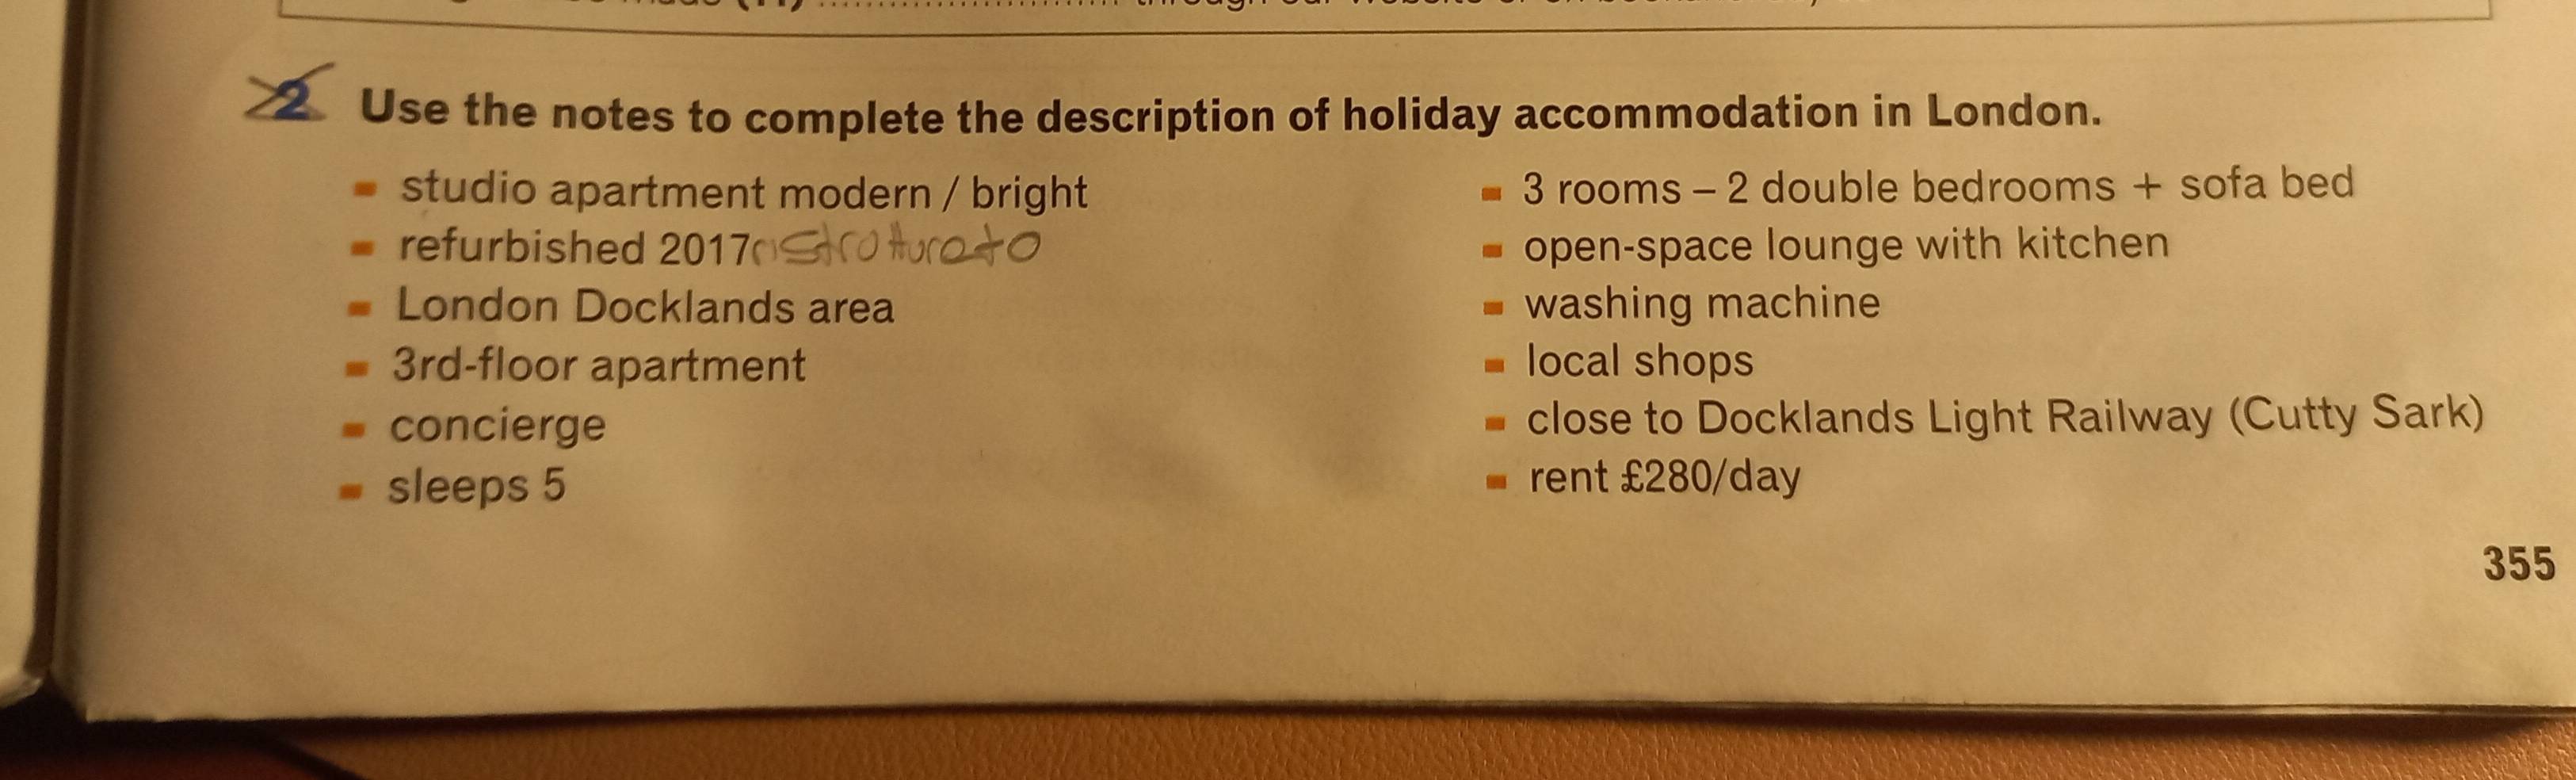 (11) ........................ through our website or on
2 Use the notes to complete the description of holiday accommodation in London.
▪ studio apartment modern / bright
▪ refurbished 2017 ristrutturato
▪ London Docklands area
▪ 3rd-floor apartment
▪ concierge
▪ sleeps 5
▪ 3 rooms – 2 double bedrooms + sofa bed
▪ open-space lounge with kitchen
▪ washing machine
▪ local shops
▪ close to Docklands Light Railway (Cutty Sark)
▪ rent £280/day
355